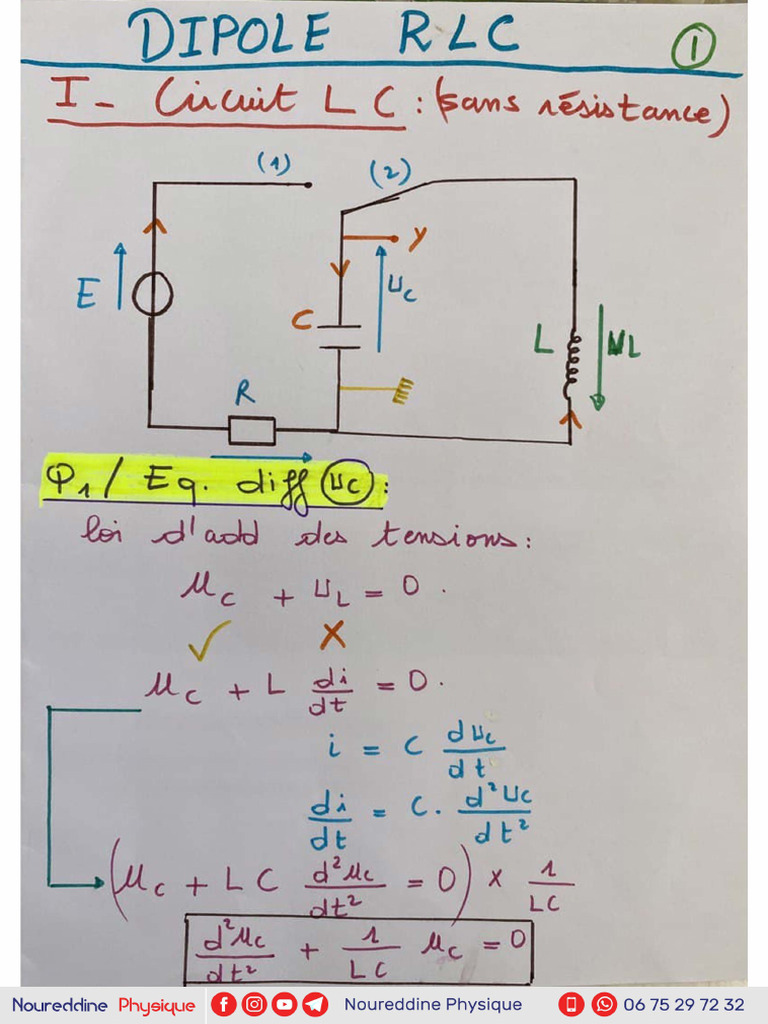 DIPOLE RLC
1
I- Circuit LC : (sans résistance)
(1)
(2)
y
E
uc
C
L
uL
R
φ1 / Eq. diff (uc) :
loi d'add des tensions :
uc + uL = 0 .
✓ X
uc + L di/dt = 0 .
i = C duc/dt
di/dt = C. d²uc/dt²
(uc + LC d²uc/dt² = 0) × 1/LC
d²uc/dt² + 1/LC uc = 0
Noureddine Physique Noureddine Physique 06 75 29 72 32